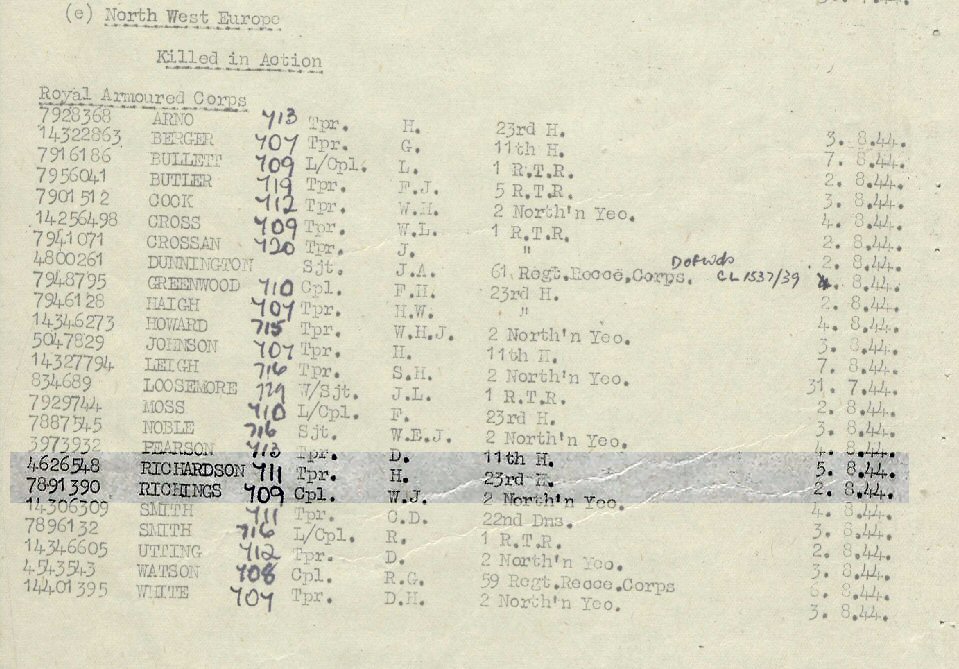 (e) North West Europe
Killed in Action
Royal Armoured Corps
7928368 ARNO 713 Tpr. H. 23rd H. 3. 8.44.
14322863 BERGER 707 Tpr. G. 11th H. 7. 8.44.
7916186 BULLETT 709 L/Cpl. L. 1 R.T.R. 2. 8.44.
7956041 BUTLER 719 Tpr. F.J. 5 R.T.R. 3. 8.44.
7901512 COCK 712 Tpr. W.H. 2 North'n Yeo. 4. 8.44.
14256498 CROSS 709 Tpr. W.L. 1 R.T.R. 2. 8.44.
7941071 CROSSAN 720 Tpr. J. " 2. 8.44.
4800261 DUNNINGTON Sjt. J.A. 61 Regt.Recce.Corps. DofWds CL1537/39 4. 8.44.
7948795 GREENWOOD 710 Cpl. F.H. 23rd H. 2. 8.44.
7946128 HAIGH 707 Tpr. H.W. " 4. 8.44.
14346273 HOWARD 715 Tpr. W.H.J. 2 North'n Yeo. 3. 8.44.
5047829 JOHNSON 707 Tpr. H. 11th H. 7. 8.44.
14327794 LEIGH 716 Tpr. S.H. 2 North'n Yeo. 31. 7.44.
834689 LOOSEMORE 729 W/Sjt. J.L. 1 R.T.R. 2. 8.44.
7929744 MOSS 710 L/Cpl. F. 23rd H. 3. 8.44.
7887545 NOBLE 716 Sjt. W.E.J. 2 North'n Yeo. 4. 8.44.
3973932 PEARSON 713 Tpr. D. 11th H. 5. 8.44.
4626548 RICHARDSON 711 Tpr. H. 23rd H. 2. 8.44.
7891390 RICHINGS 709 Cpl. W.J. 2 North'n Yeo. 4. 8.44.
14306309 SMITH 711 Tpr. C.D. 22nd Dns. 3. 8.44.
7896132 SMITH 716 L/Cpl. R. 1 R.T.R. 2. 8.44.
14346605 UTTING 712 Tpr. D. 2 North'n Yeo. 3. 8.44.
4543543 WATSON 708 Cpl. R.G. 59 Regt.Recce.Corps 6. 8.44.
14401395 WHITE 707 Tpr. D.H. 2 North'n Yeo. 3. 8.44.